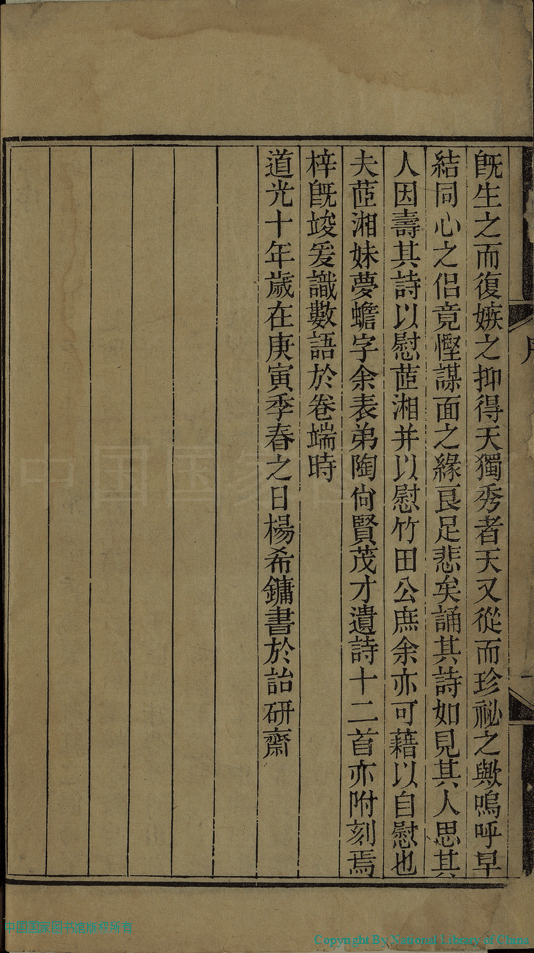 既生之而復嫉之抑得天獨秀者天又從而珍祕之歟嗚呼早
結同心之侶竟慳謀面之緣良足悲矣誦其詩如見其人思其
人因壽其詩以慰茝湘并以慰竹田公庶余亦可藉以自慰也
夫茝湘妹夢蟾字余表弟陶尙賢茂才遺詩十二首亦附刻焉
梓既竣爰識數語於卷端時
道光十年歲在庚寅季春之日楊希鏞書於詒研齋
Copyright By National Library of China